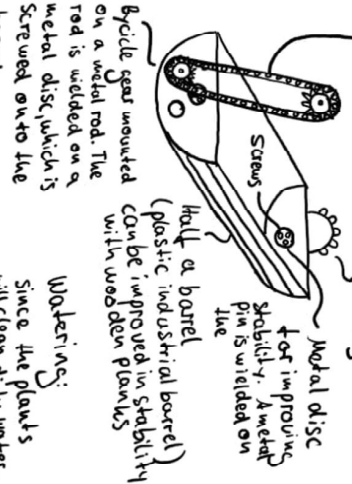 Bycicle gear mounted
on a metal rod. The
rod is wielded on a
metal disc, which is
screwed onto the
Screws
Metal disc
for improving
stability. A metal
pin is wielded on
the
Half a barrel
(plastic industrial barrel)
can be improved in stability
with wooden planks
Watering:
since the plants
will clean dirty water